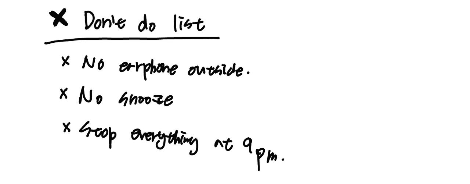 × Don't do list
× No earphone outside.
× No snooze
× Stop everything at 9pm.